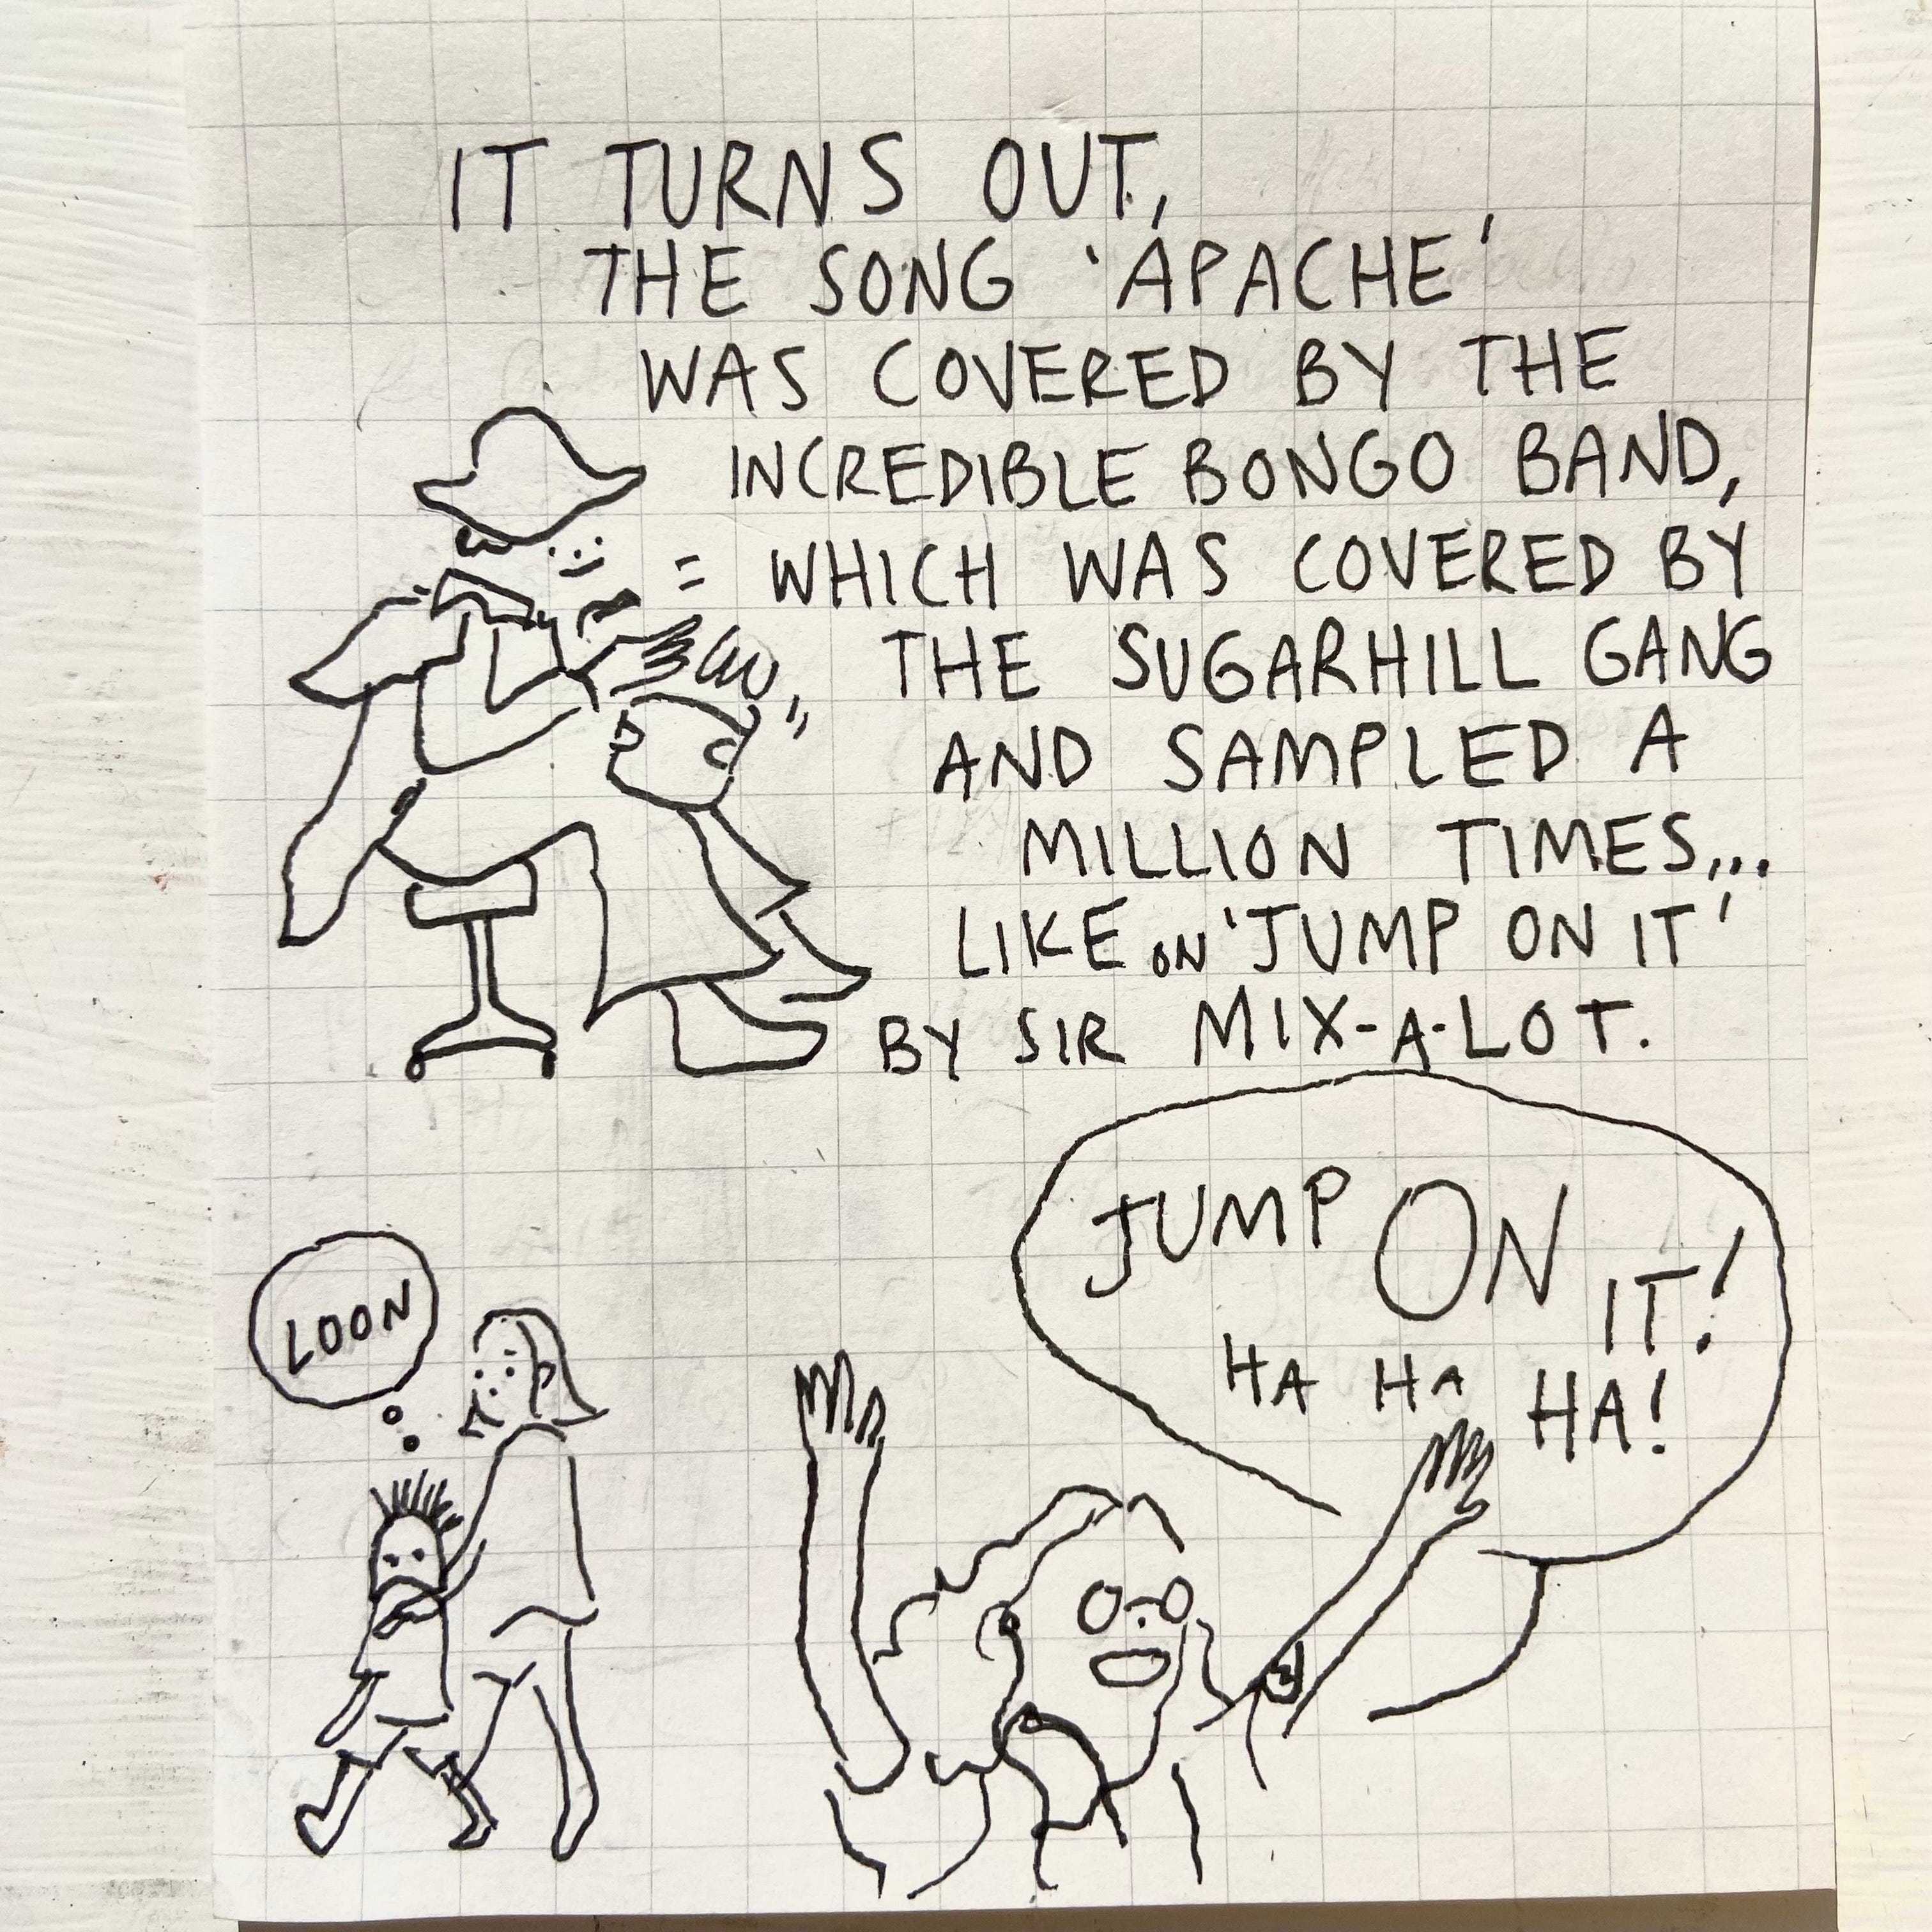 IT TURNS OUT,
THE SONG 'APACHE'
WAS COVERED BY THE
INCREDIBLE BONGO BAND,
WHICH WAS COVERED BY
THE SUGARHILL GANG
AND SAMPLED A
MILLION TIMES...
LIKE ON 'JUMP ON IT'
BY SIR MIX-A-LOT.
JUMP ON IT!
HA HA HA!
LOON